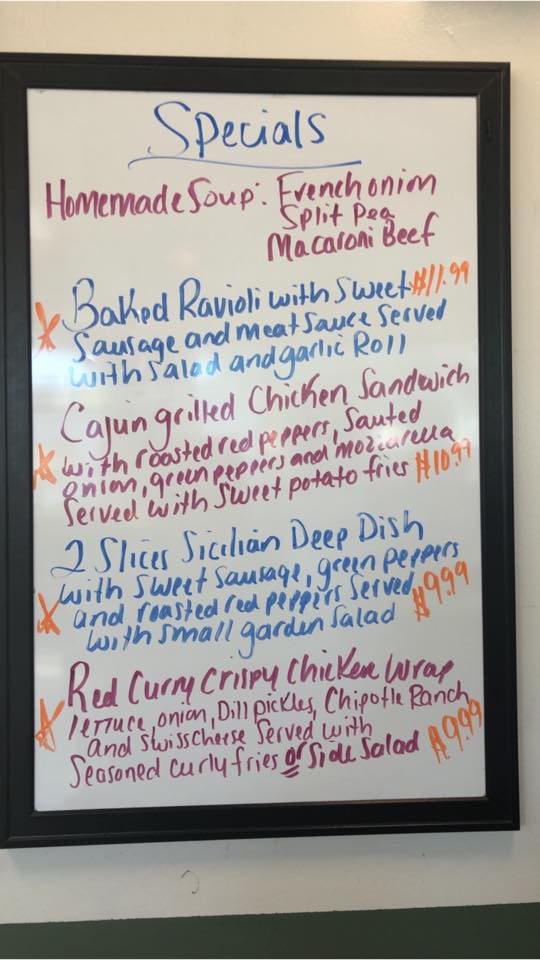 Specials
Homemade Soup: French onion
Split Pea
Macaroni Beef
Baked Ravioli with Sweet $11.99
Sausage and meat sauce served
with salad and garlic Roll
Cajun grilled Chicken Sandwich
with roasted red peppers, Sauted
onion, green peppers and mozzarella
Served with Sweet potato fries $10.99
2 Slices Sicilian Deep Dish
with sweet sausage, green peppers
and roasted red peppers Served $9.99
with small garden salad
Red Curry Crispy Chicken Wrap
lettuce, onion, Dill pickles, Chipotle Ranch
and swiss cheese Served with
Seasoned curly fries or Side Salad $9.99